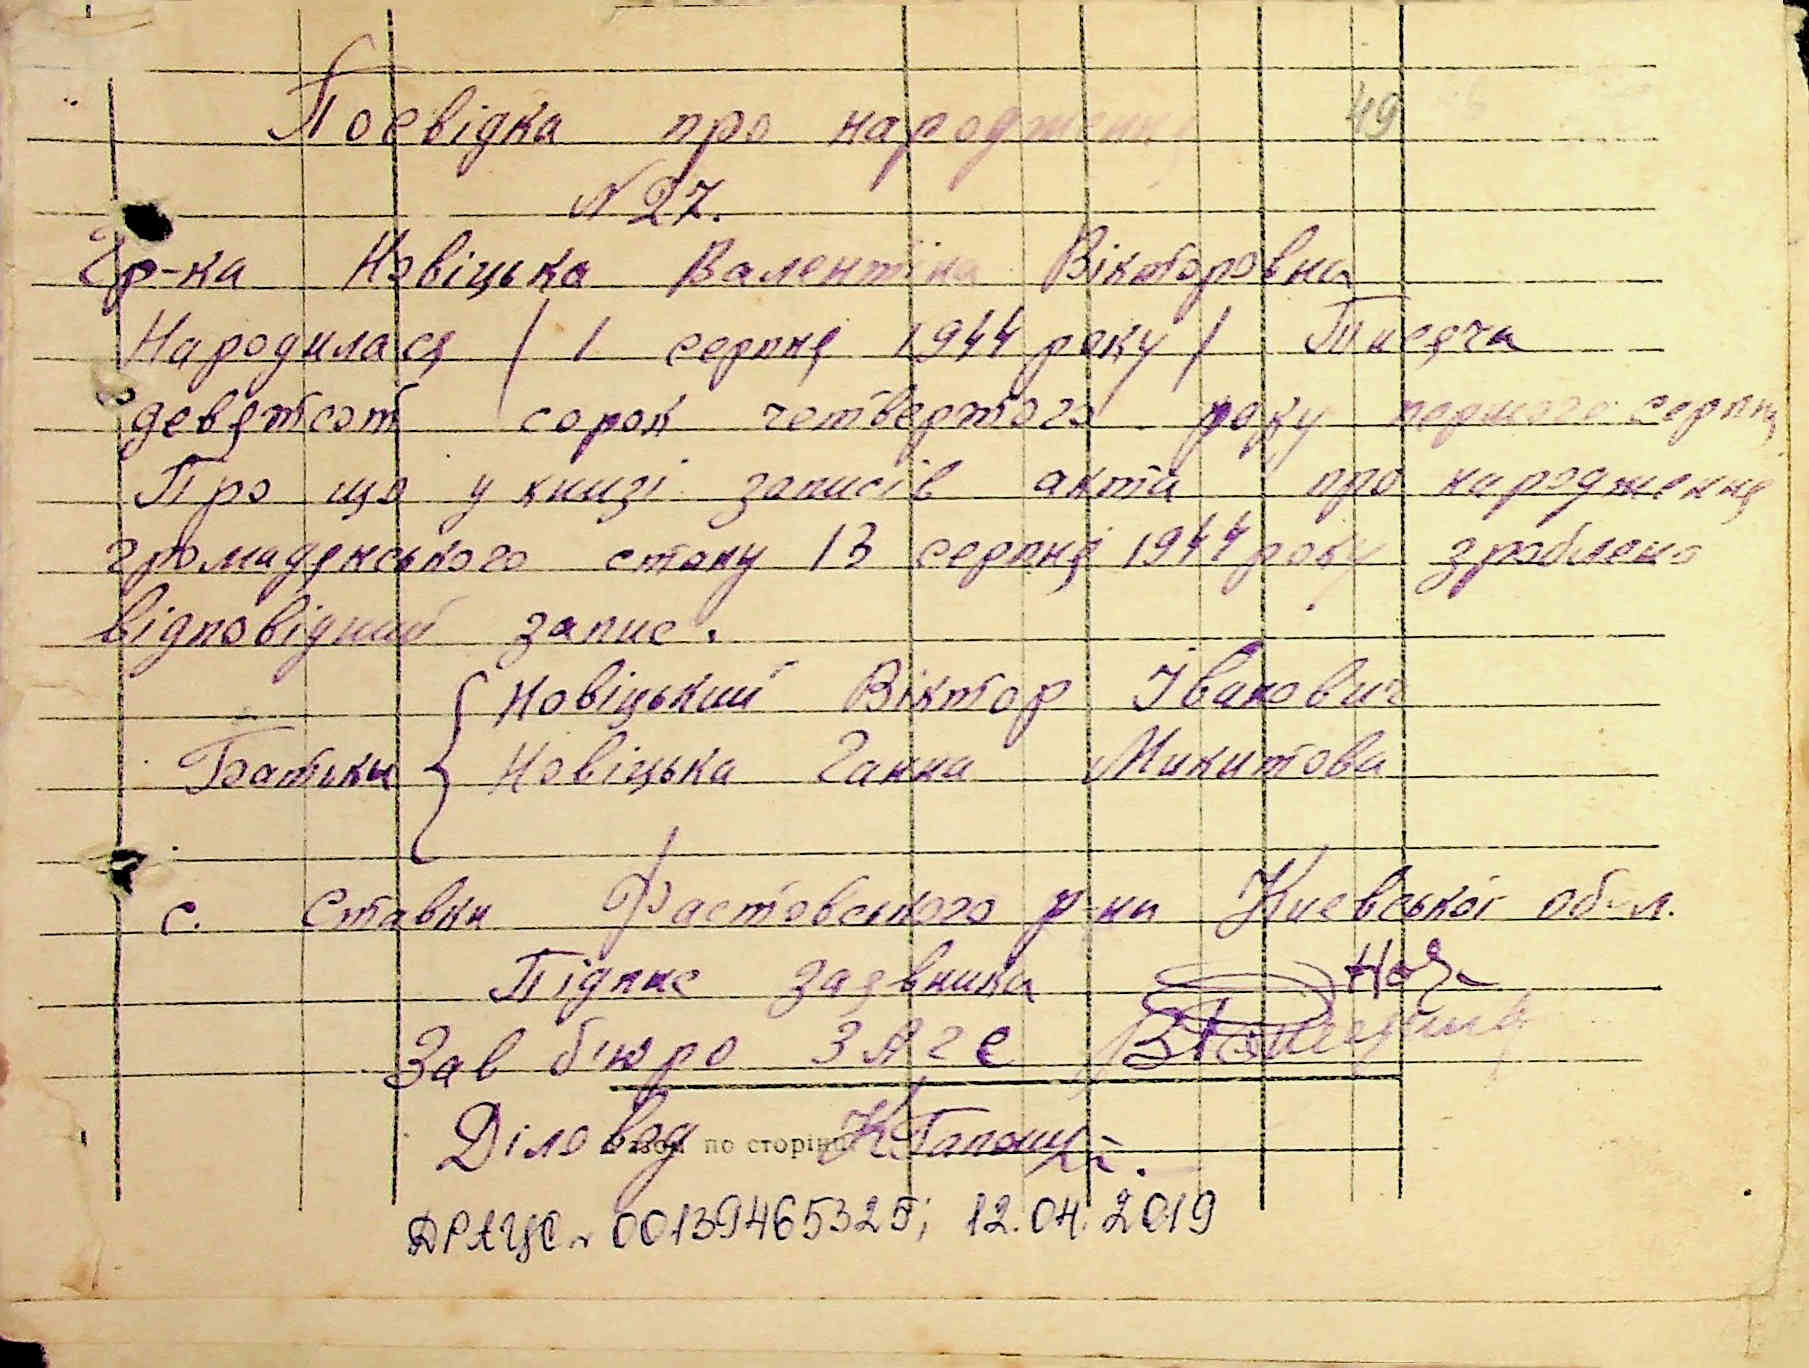 Посвідка про народження 49
N 27.
Гр-ка Новіцька Валентіна Вікторовна
Народилася / 1 серпня 1944 року / Тисяча
девятсот сорок четвертого року першого серпня
Про що у книзі записів акта про народження
громадянського стану 13 серпня 1944 року зроблено
відповідний запис.
Новіцький Віктор Іванович
Батьки Новіцька Ганна Микитова
с. Ставки Фастовського р-на Киевської обл.
Підпис заявника Нов
Зав бюро ЗАГС
Діловод по сторінці
ДРАЦС 00139465325; 12.04.2019